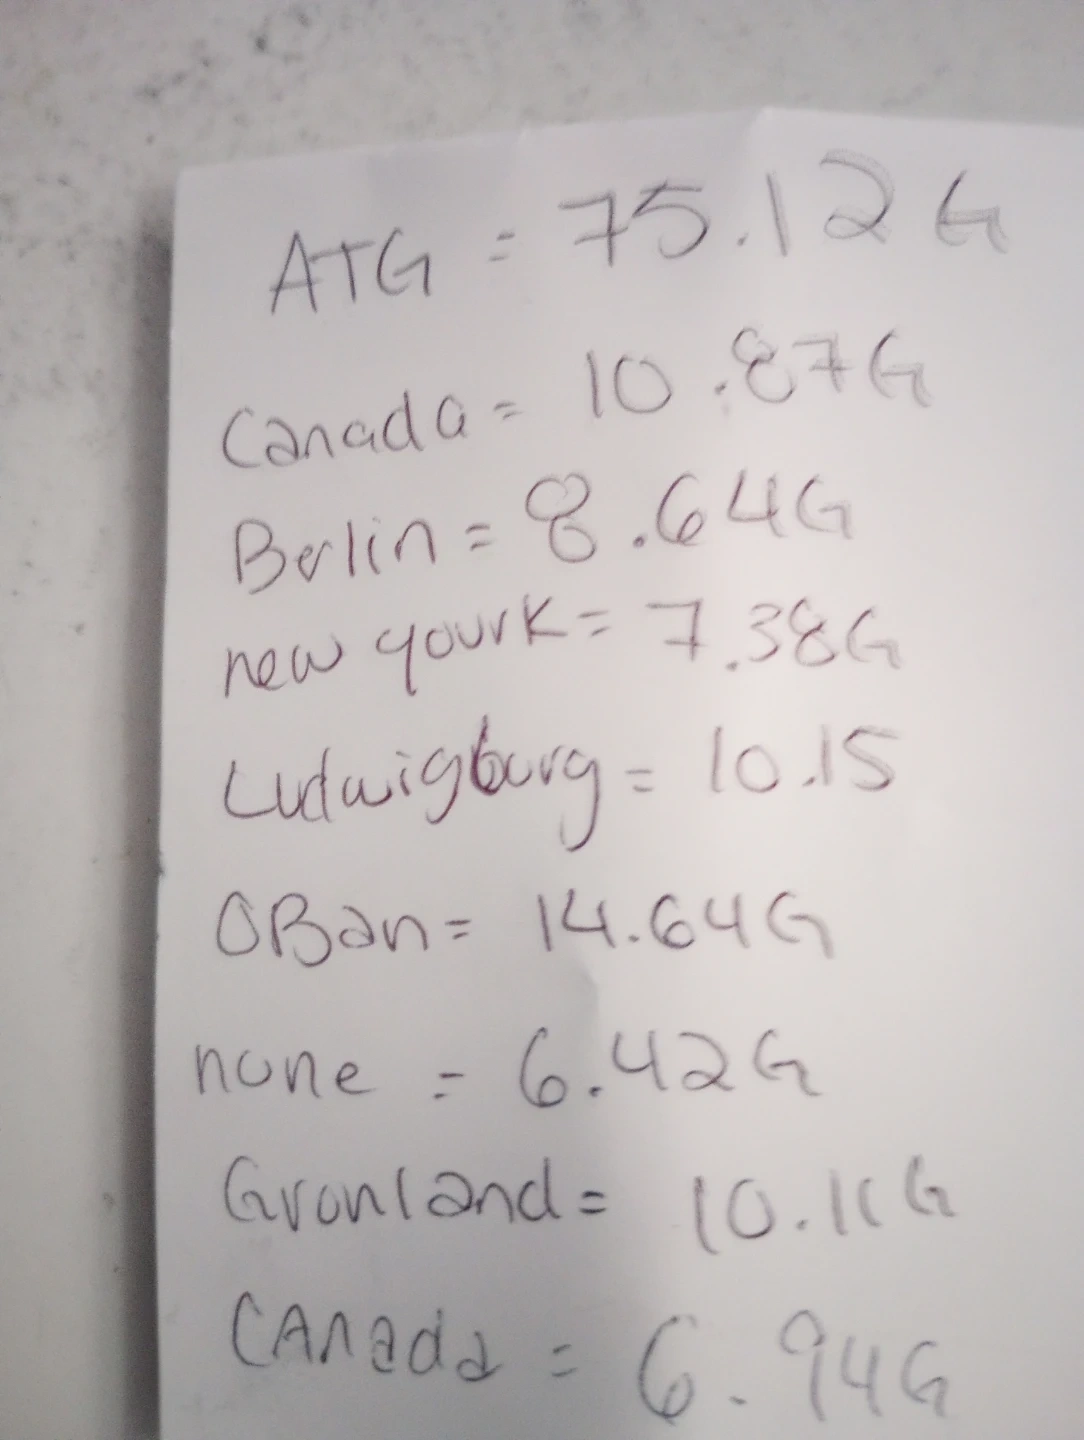 ATG = 75.12G
Canada = 10.87G
Berlin = 8.64G
new yourk = 7.38G
Ludwigburg = 10.15
OBan = 14.64G
none = 6.42G
Gronland =
CAnada = 6.94G